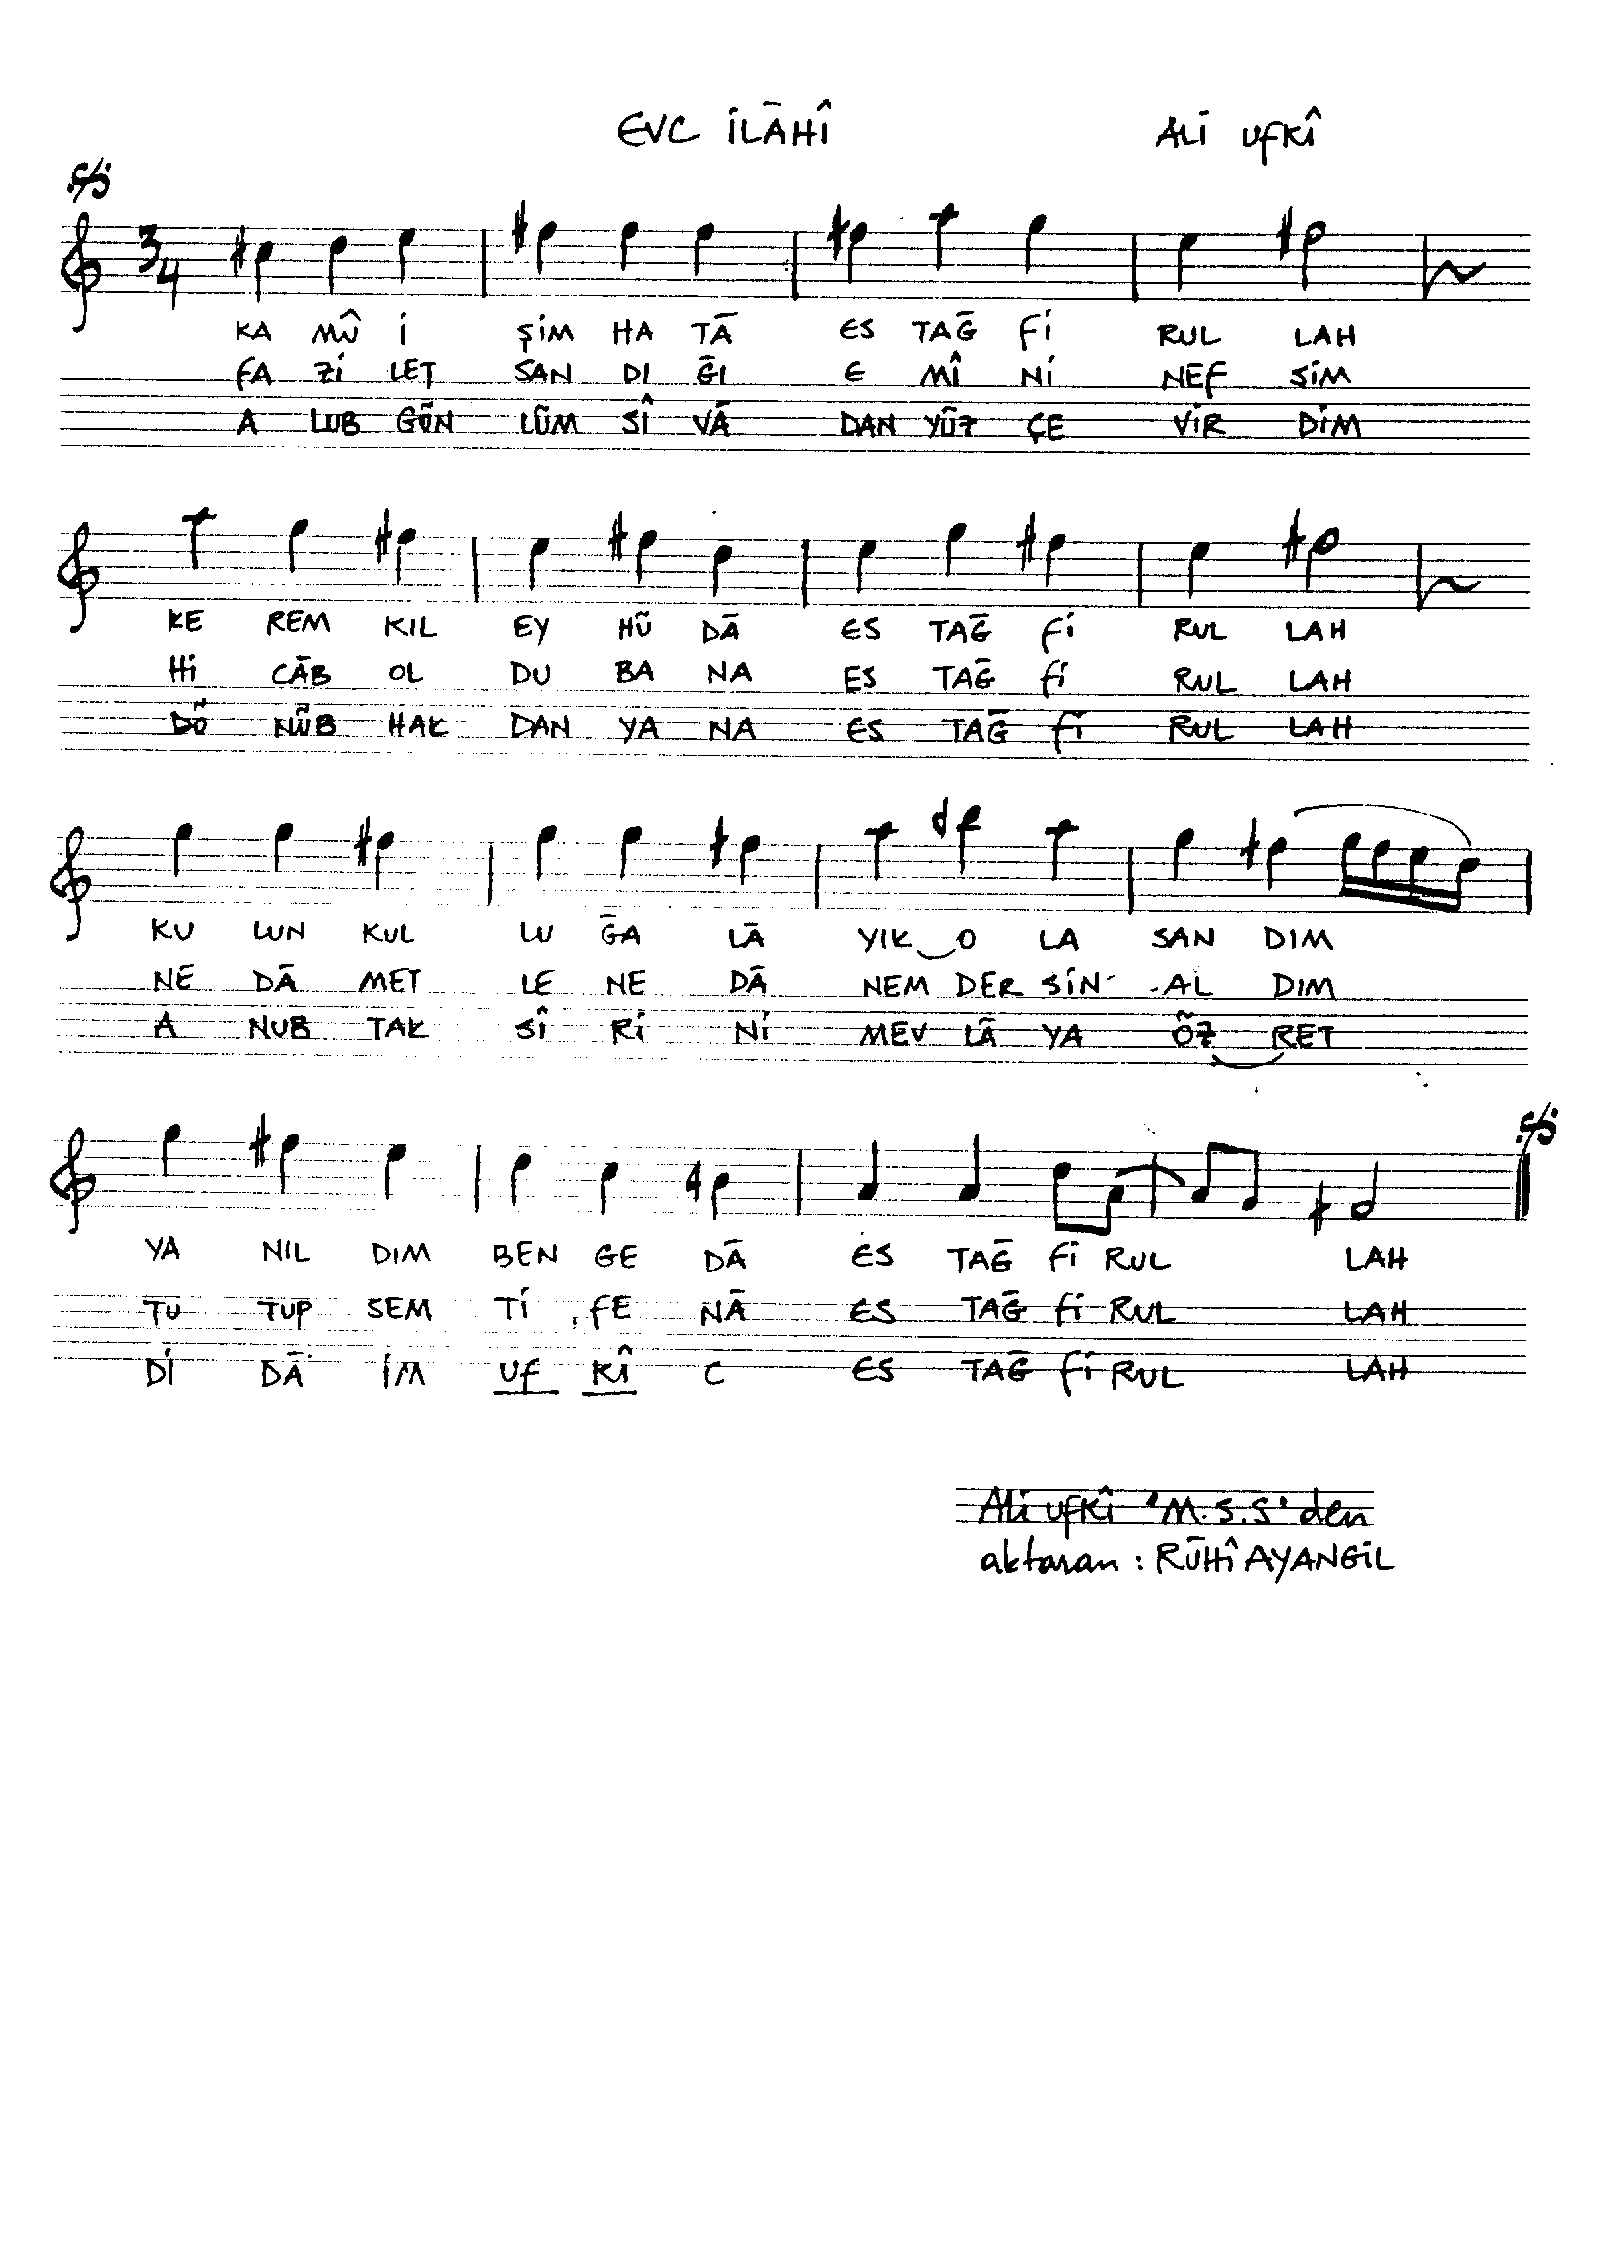 EVC İLĀHÎ ALİ UFKÎ
3/4
KA MÛ İ ŞİM HA TĀ ES TAḠ Fİ RUL LAH
FA Zİ LET SAN DI ḠI E MÎ Nİ NEF SİM
A LUB GÖN LÜM SÎ VĀ DAN YÜZ ÇE VİR DİM
KE REM KIL EY HÜ DĀ ES TAḠ Fİ RUL LAH
Hİ CĀB OL DU BA NA ES TAḠ Fİ RUL LAH
DÖ NÜB HAK DAN YA NA ES TAḠ Fİ RUL LAH
KU LUN KUL LU ḠA LĀ YIK‿O LA SAN DIM
NE DĀ MET LE NE DĀ NEM DER SİN AL DIM
A NUB TAK SÎ Rİ Nİ MEV LĀ YA ÖZ‿RET
YA NIL DIM BEN GE DĀ ES TAḠ Fİ RUL LAH
TU TUP SEM Tİ FE NĀ ES TAḠ Fİ RUL LAH
Dİ DĀ İM UF KÎ C ES TAḠ Fİ RUL LAH
Ali ufkî 'M.S.S' den
aktaran : RŪHÎ AYANGİL